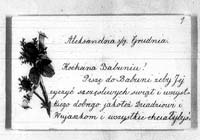 Aleksandria Grudnia.
Kochana Babuniu!
Piszę do Babuni żeby Jej
życzyć szczęśliwych świąt i wszyst-
kiego dobrego jakoteż Dziadziowi i
Wujaszkom i wszystkie chciałybyś